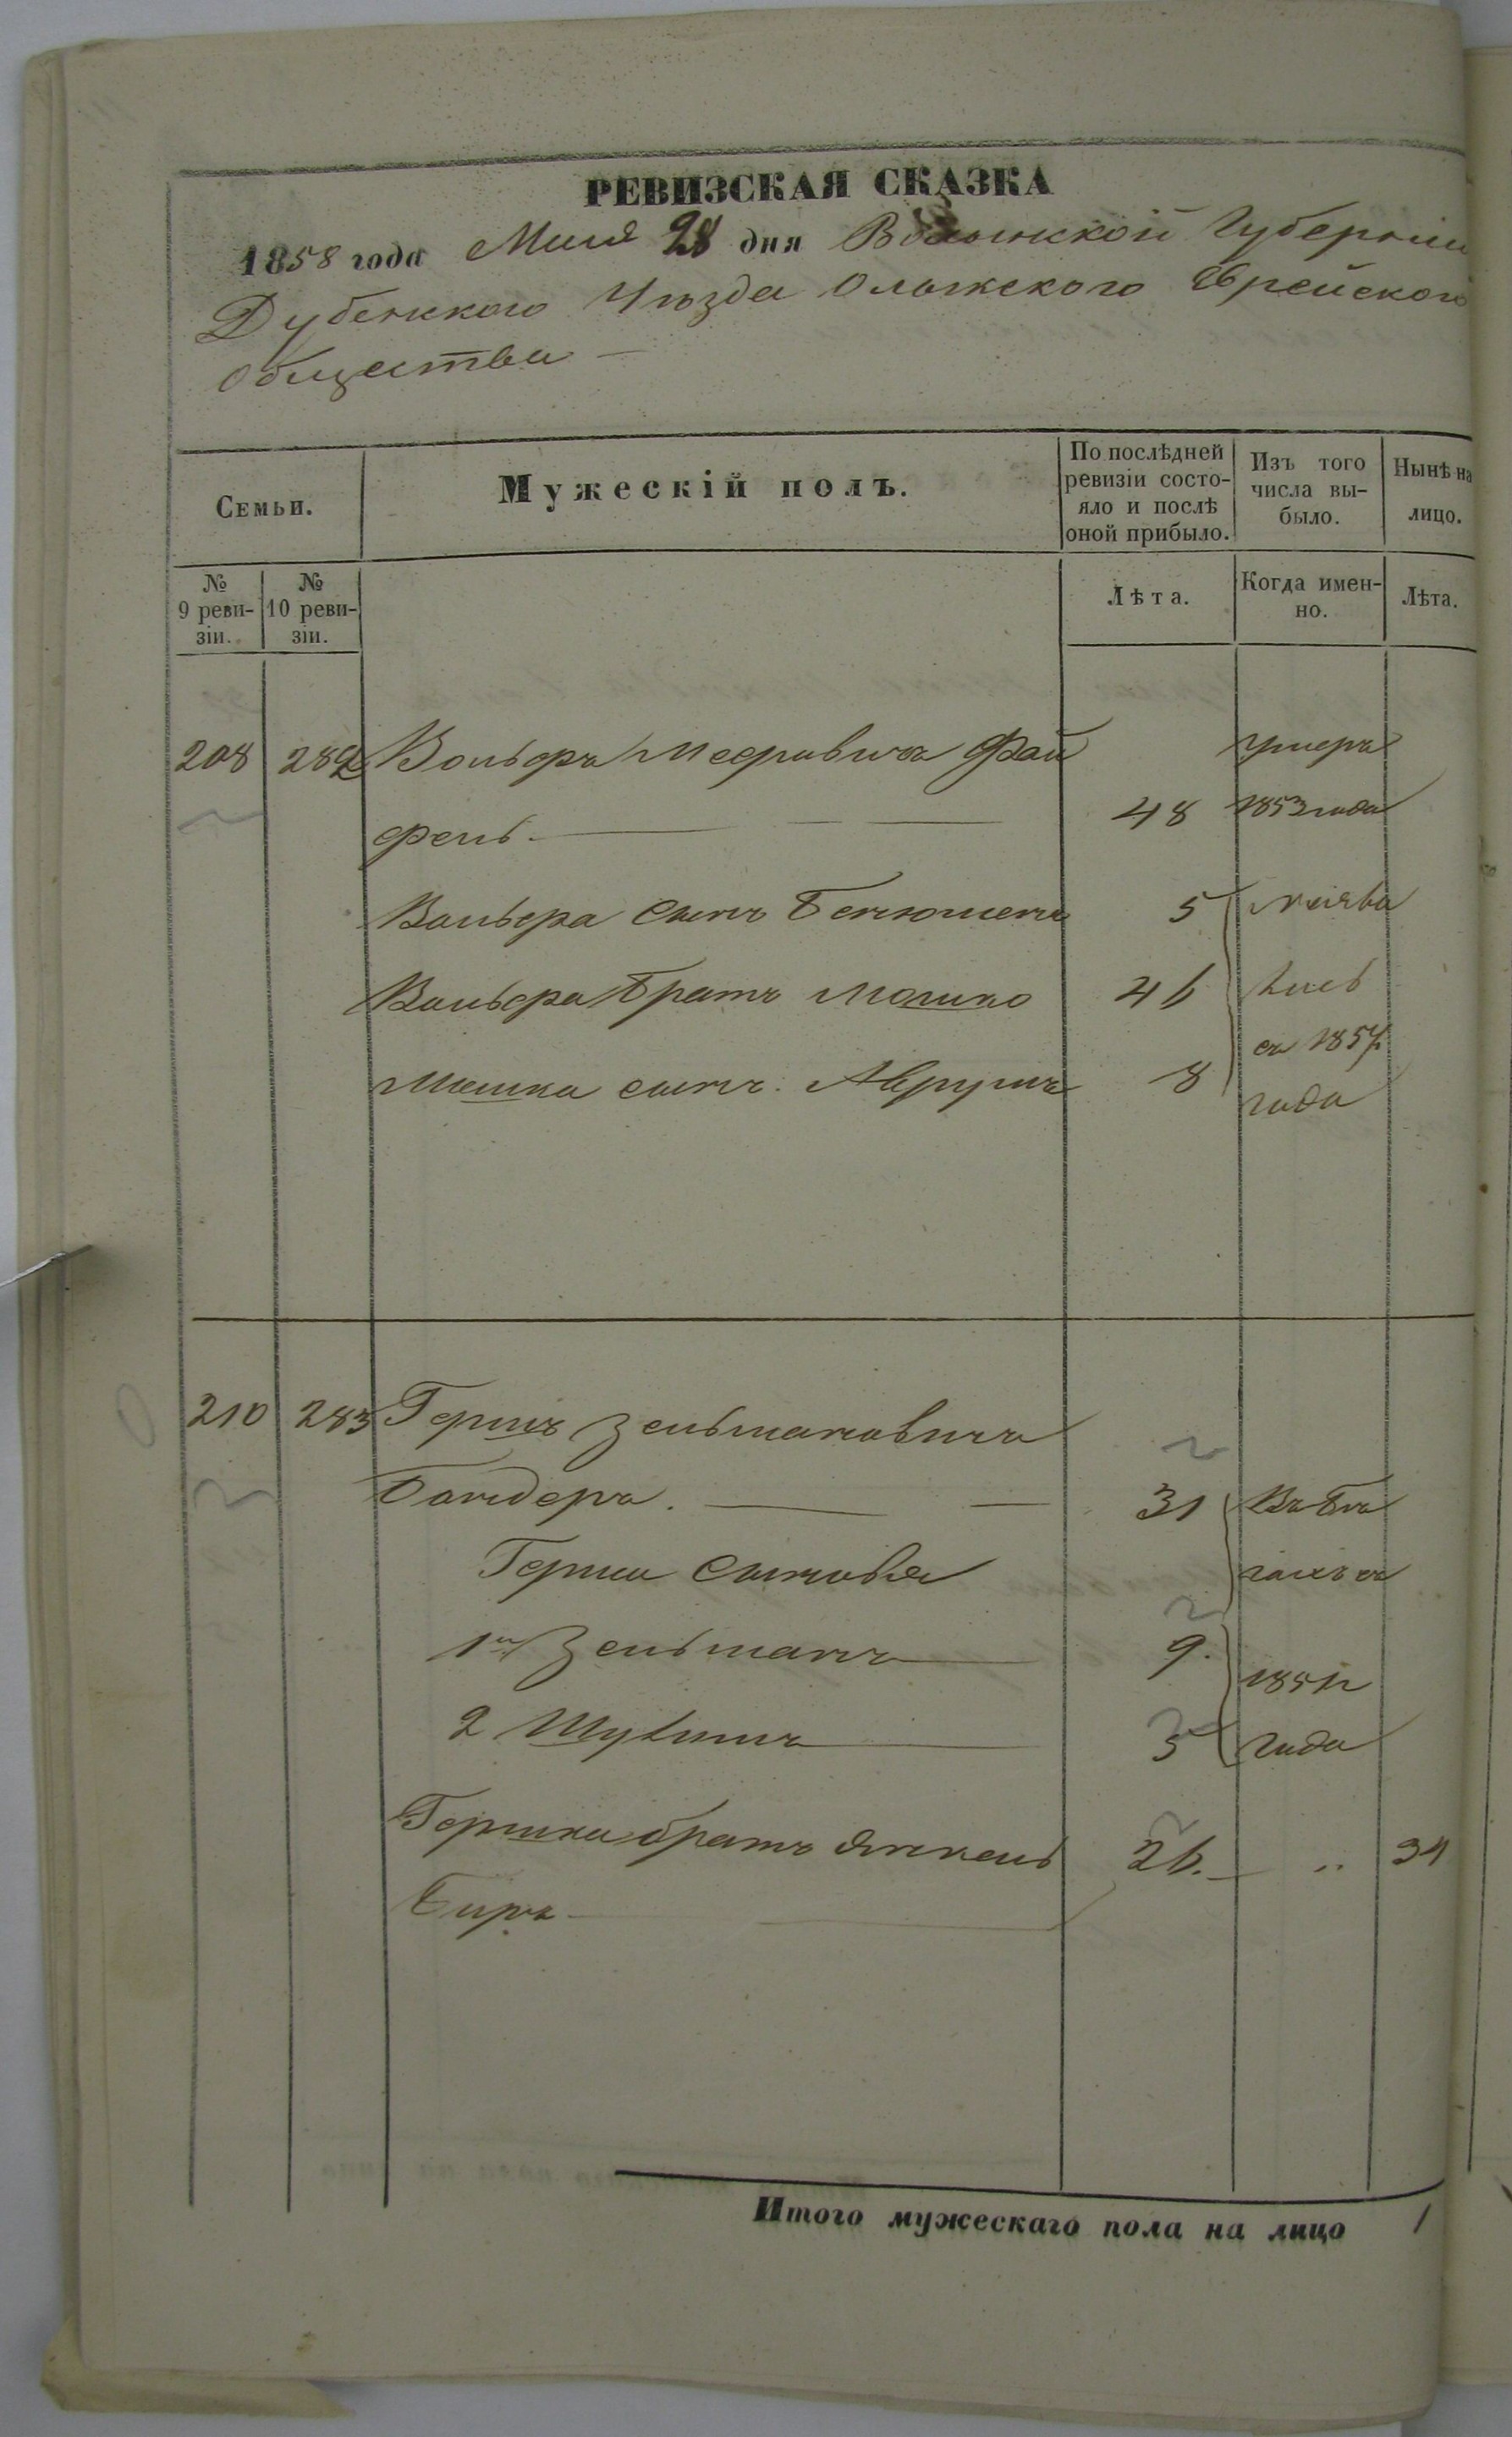 РЕВИЗСКАЯ СКАЗКА
1858 года Маия 28 дня Волынской Губернии
Дубенского Уѣзда Олыкского Еврейского
Общества —
Семьи.
Мужескій полъ.
По послѣдней ревизіи состо-
яло и послѣ оной прибыло.
Изъ того числа вы-
было.
Нынѣ на лицо.
№ 9 реви-
зіи.
№ 10 реви-
зіи.
Лѣта.
Когда имен-
но.
Лѣта.
208 282 Вольфъ Мееровичъ Фай умеръ
фель. — — — 48 1853 года
Вольфа сынъ Бенюменъ 5
Вольфа братъ Мошко 46
съ 1857
Мошка сынъ Аврумъ 8 года
210 283 Гершъ Зельмановичъ
Бондеръ. — — 31 Въ бѣ
Герша сыновья гахъ съ
1й Зельманъ — 9.
185
2 Шулимъ — 3 года
Гершка братъ Янкель 26. — „ 34
Беръ —
Итого мужескаго пола на лицо 1